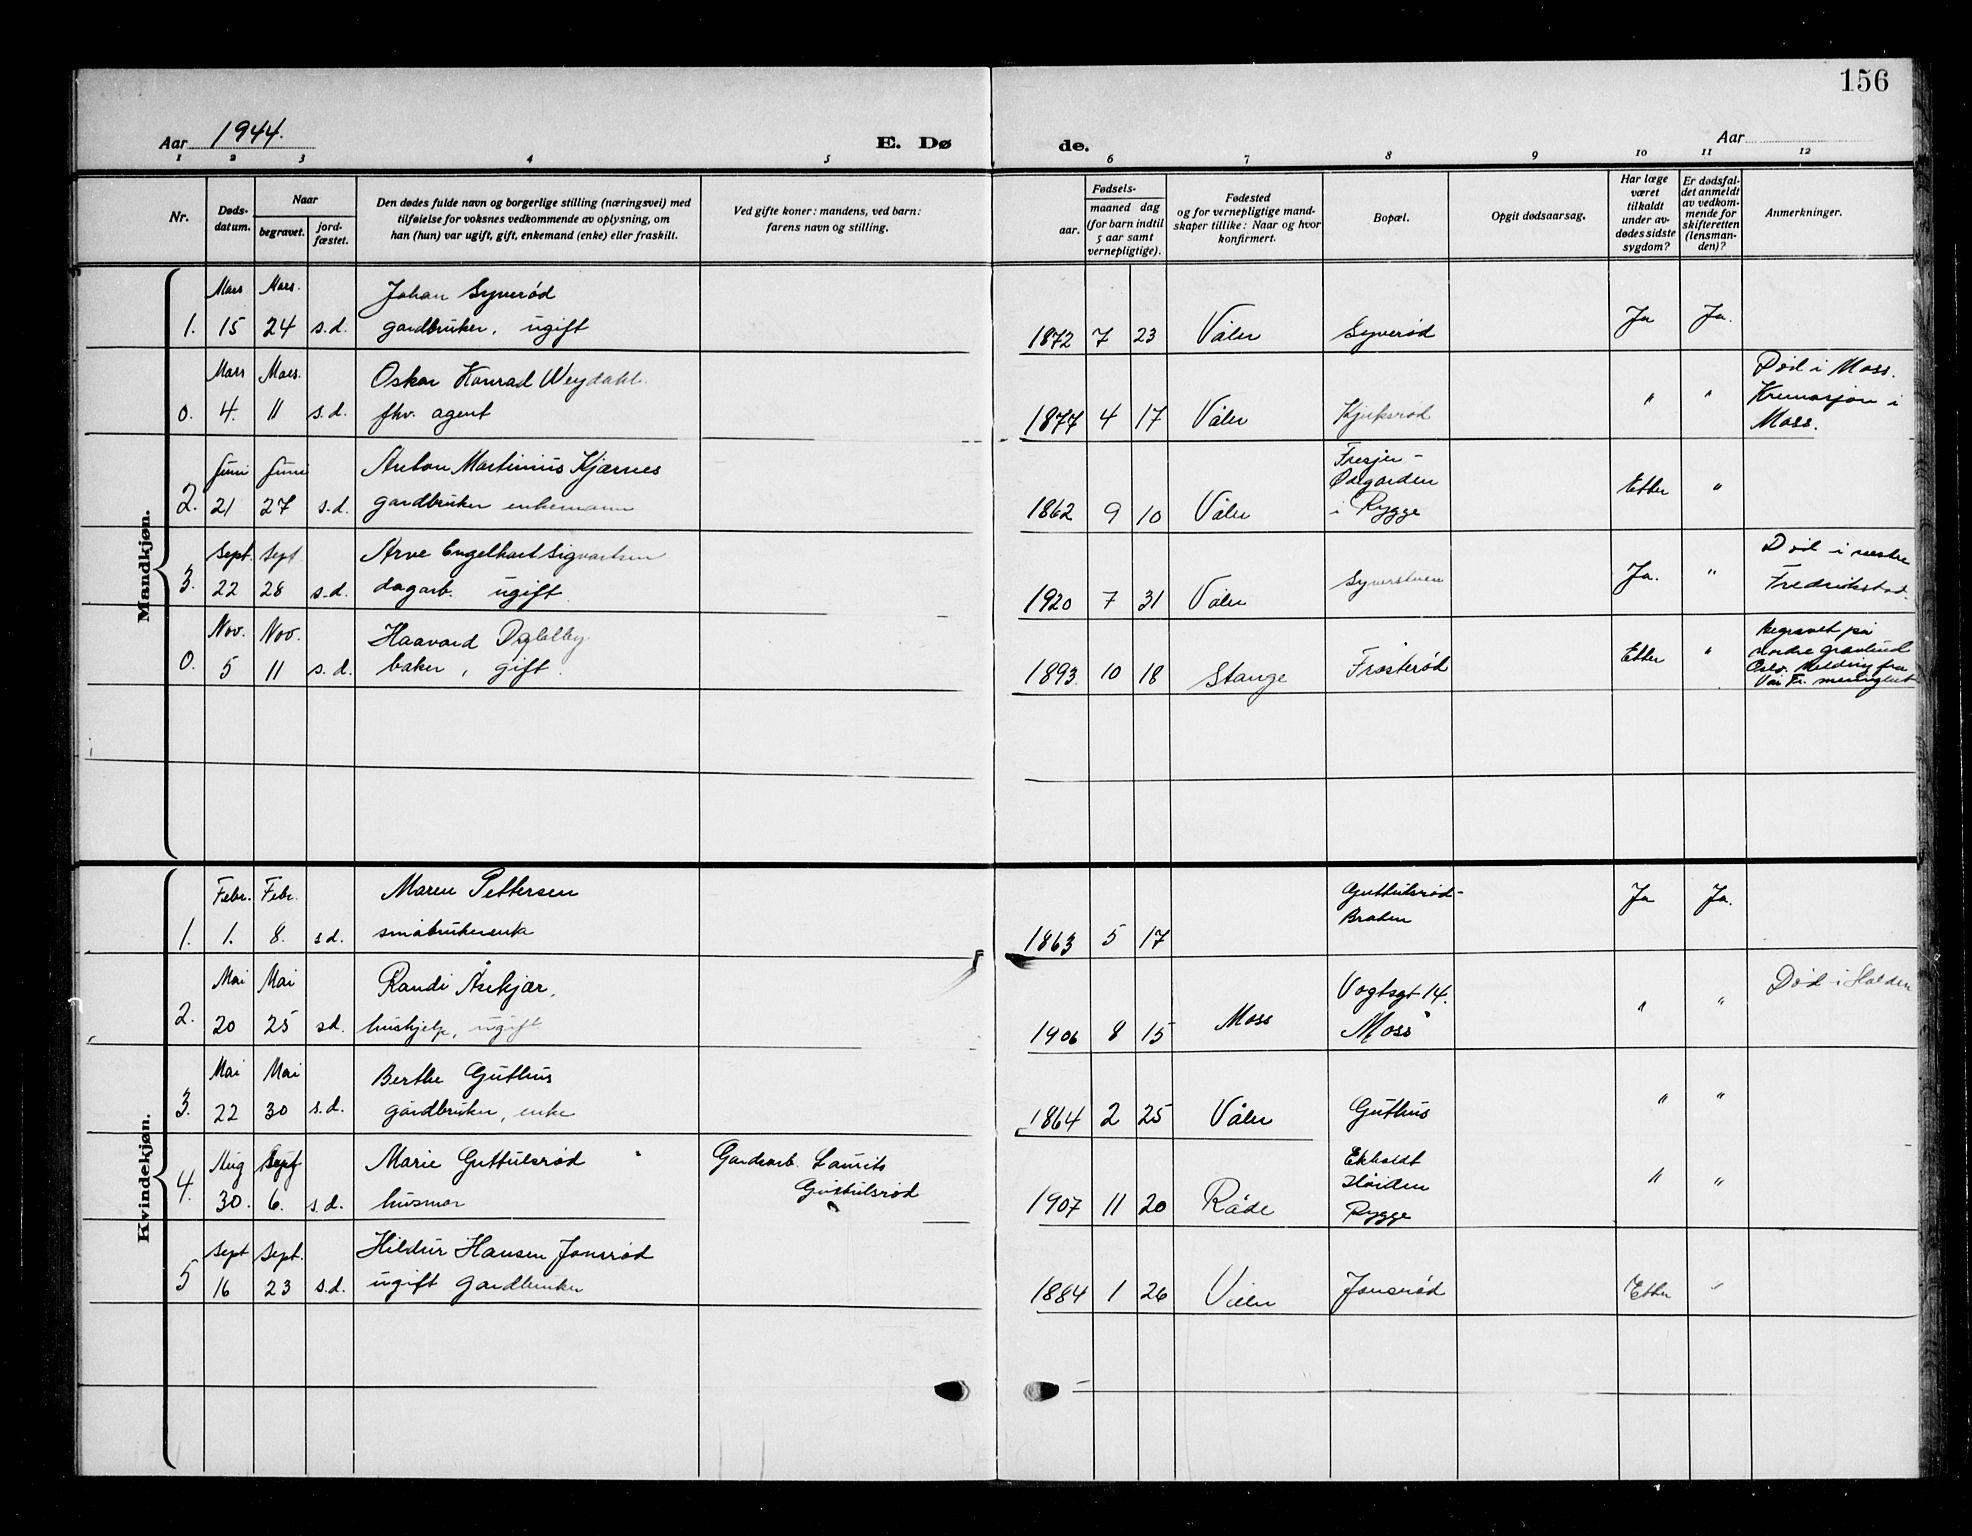 156
Aar 1944.
E. Døde.
Aar
1 2 3 4 5 6 7 8 9 10 11 12
Nr.
Døds-
datum.
Naar
begravet.
jord-
fæstet.
Den dødes fulde navn og borgerlige stilling (næringsvei) med
tilføielse for voksnes vedkommende av oplysning, om
han (hun) var ugift, gift, enkemand (enke) eller fraskilt.
Ved gifte koner: mandens, ved barn:
farens navn og stilling.
Fødsels-
aar.
maaned dag
(for barn indtil
5 aar samt
vernepligtige).
Fødested
og for vernepligtige mand-
skaper tillike: Naar og hvor
konfirmert.
Bopæl.
Opgit dødsaarsag.
Har læge
været
tilkaldt
under av-
dødes sidste
sygdom?
Er dødsfal-
det anmeldt
av vedkom-
mende for
skifteretten
(lensman-
den)?
Anmerkninger.
Mandkjøn.
Mars Mars. Johan Syverød
1. 15 24 s.d. gardbruker, ugift 1872 7 23 Våler Syverød Ja Ja.
Mars Mars. Oskar Konrad Weydahl. Død i Moss.
0. 4. 11 s.d. fhv. agent 1874 4 17 Våler Kjuksrød " " Kremasjon i
Moss.
Juni Juni Anton Martinius Kjærnes Fresjer-
2. 21 27 s.d. gardbruker enkemann 1862 9 10 Våler Ødegarden Etter "
i Rygge
Sept. Sept Arve Engelhart Sigvartsen Død i nestre
3. 22 28 s.d. dagarb. ugift. 1920 7 31 Våler Syverstuen Ja. " Fredrikstad.
Nov. Nov. Haavard Begravet på
0. 5 11 s.d. baker, gift. 1893. 10 18 Stange Frosterød Etter " Nordre gravlund
Oslo. Melding fra
Vår Fr. menighet
Kvindekjøn.
Febr. Febr. Maren Pettersen Guttulsrød-
1. 1. 8. s.d. småbrukerenke 1863 5 17 Braten Ja Ja.
Mai Mai Randi Åsekjær, Vogtsgt 14. Død i Halden
2. 20 25 s.d. hushjelp, ugift 1906 8 15 Moss Moss " "
Mai Mai Berthe Guthus
3. 22 30 s.d. gårdbruker, enke 1864 2 25 Våler Guthus " "
Aug Sept Marie Guttulsrød Gardsarb. Laurits Ekholdt
4. 30. 6. s.d. husmor Guttulsrød 1907 11 20 Råde Høiden " "
Rygge
Sept Sept. Hildur Hansen Jonsrød
5 16 23 s.d. ugift gardbruker 1884 1 26 Våler Jonsrød Etter "